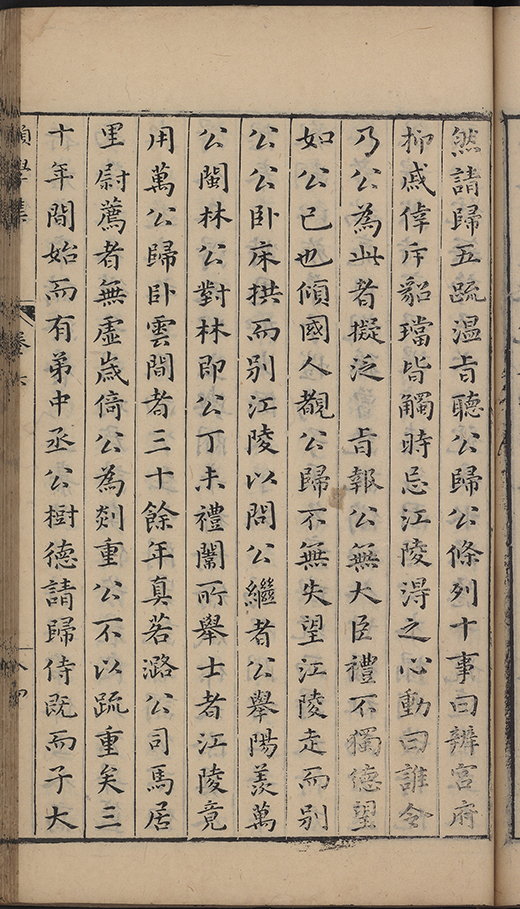 然請歸五疏溫旨聽公歸公條列十事曰辨宮府
抑戚倖斥貂璫皆觸時忌江陵得之心動曰誰令
乃公為此者擬泛　旨報公無大臣禮不獨德望
如公已也傾國人覩公歸不無失望江陵走而別
公公卧床拱而別江陵以問公繼者公舉陽羨萬
公閩林公對林即公丁未禮闈所舉士者江陵竟
用萬公歸卧雲間者三十餘年真若潞公司馬居
里尉薦者無虛歲倚公為剡重公不以疏重矣三
十年間始而有弟中丞公樹德請歸侍既而子大
學集
卷六